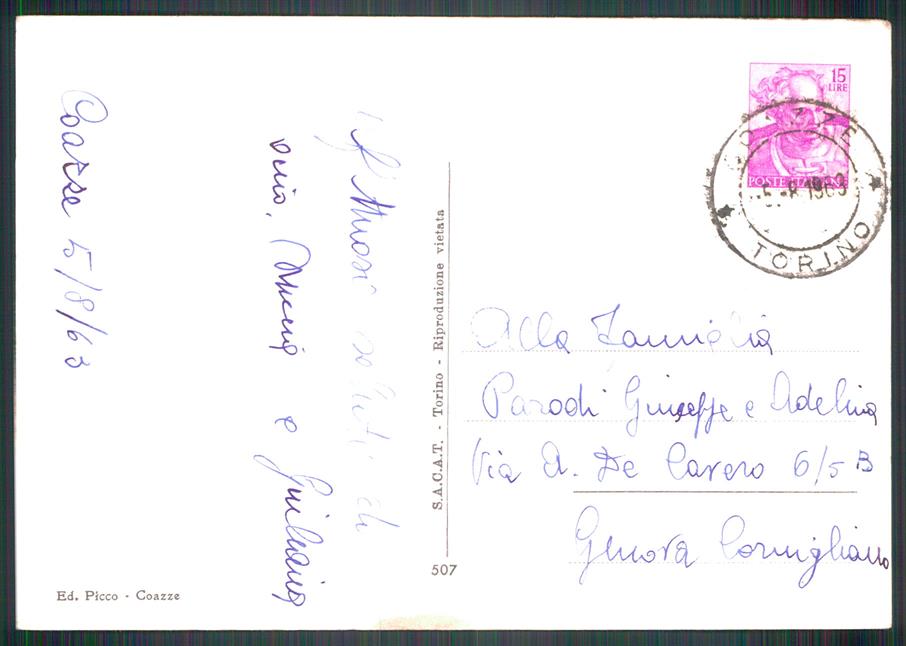 Coazze 5/8/63
saluti di
e Giuliana
S.A.C.A.T. - Torino - Riproduzione vietata
507
Ed. Picco - Coazze
15
LIRE
POSTE ITALIANE
COAZZE
5-8 1963
TORINO
Alla Famiglia
Parodi Giuseppe e Adelina
Via A. De Cavero 6/5 B
Genova Cornigliano